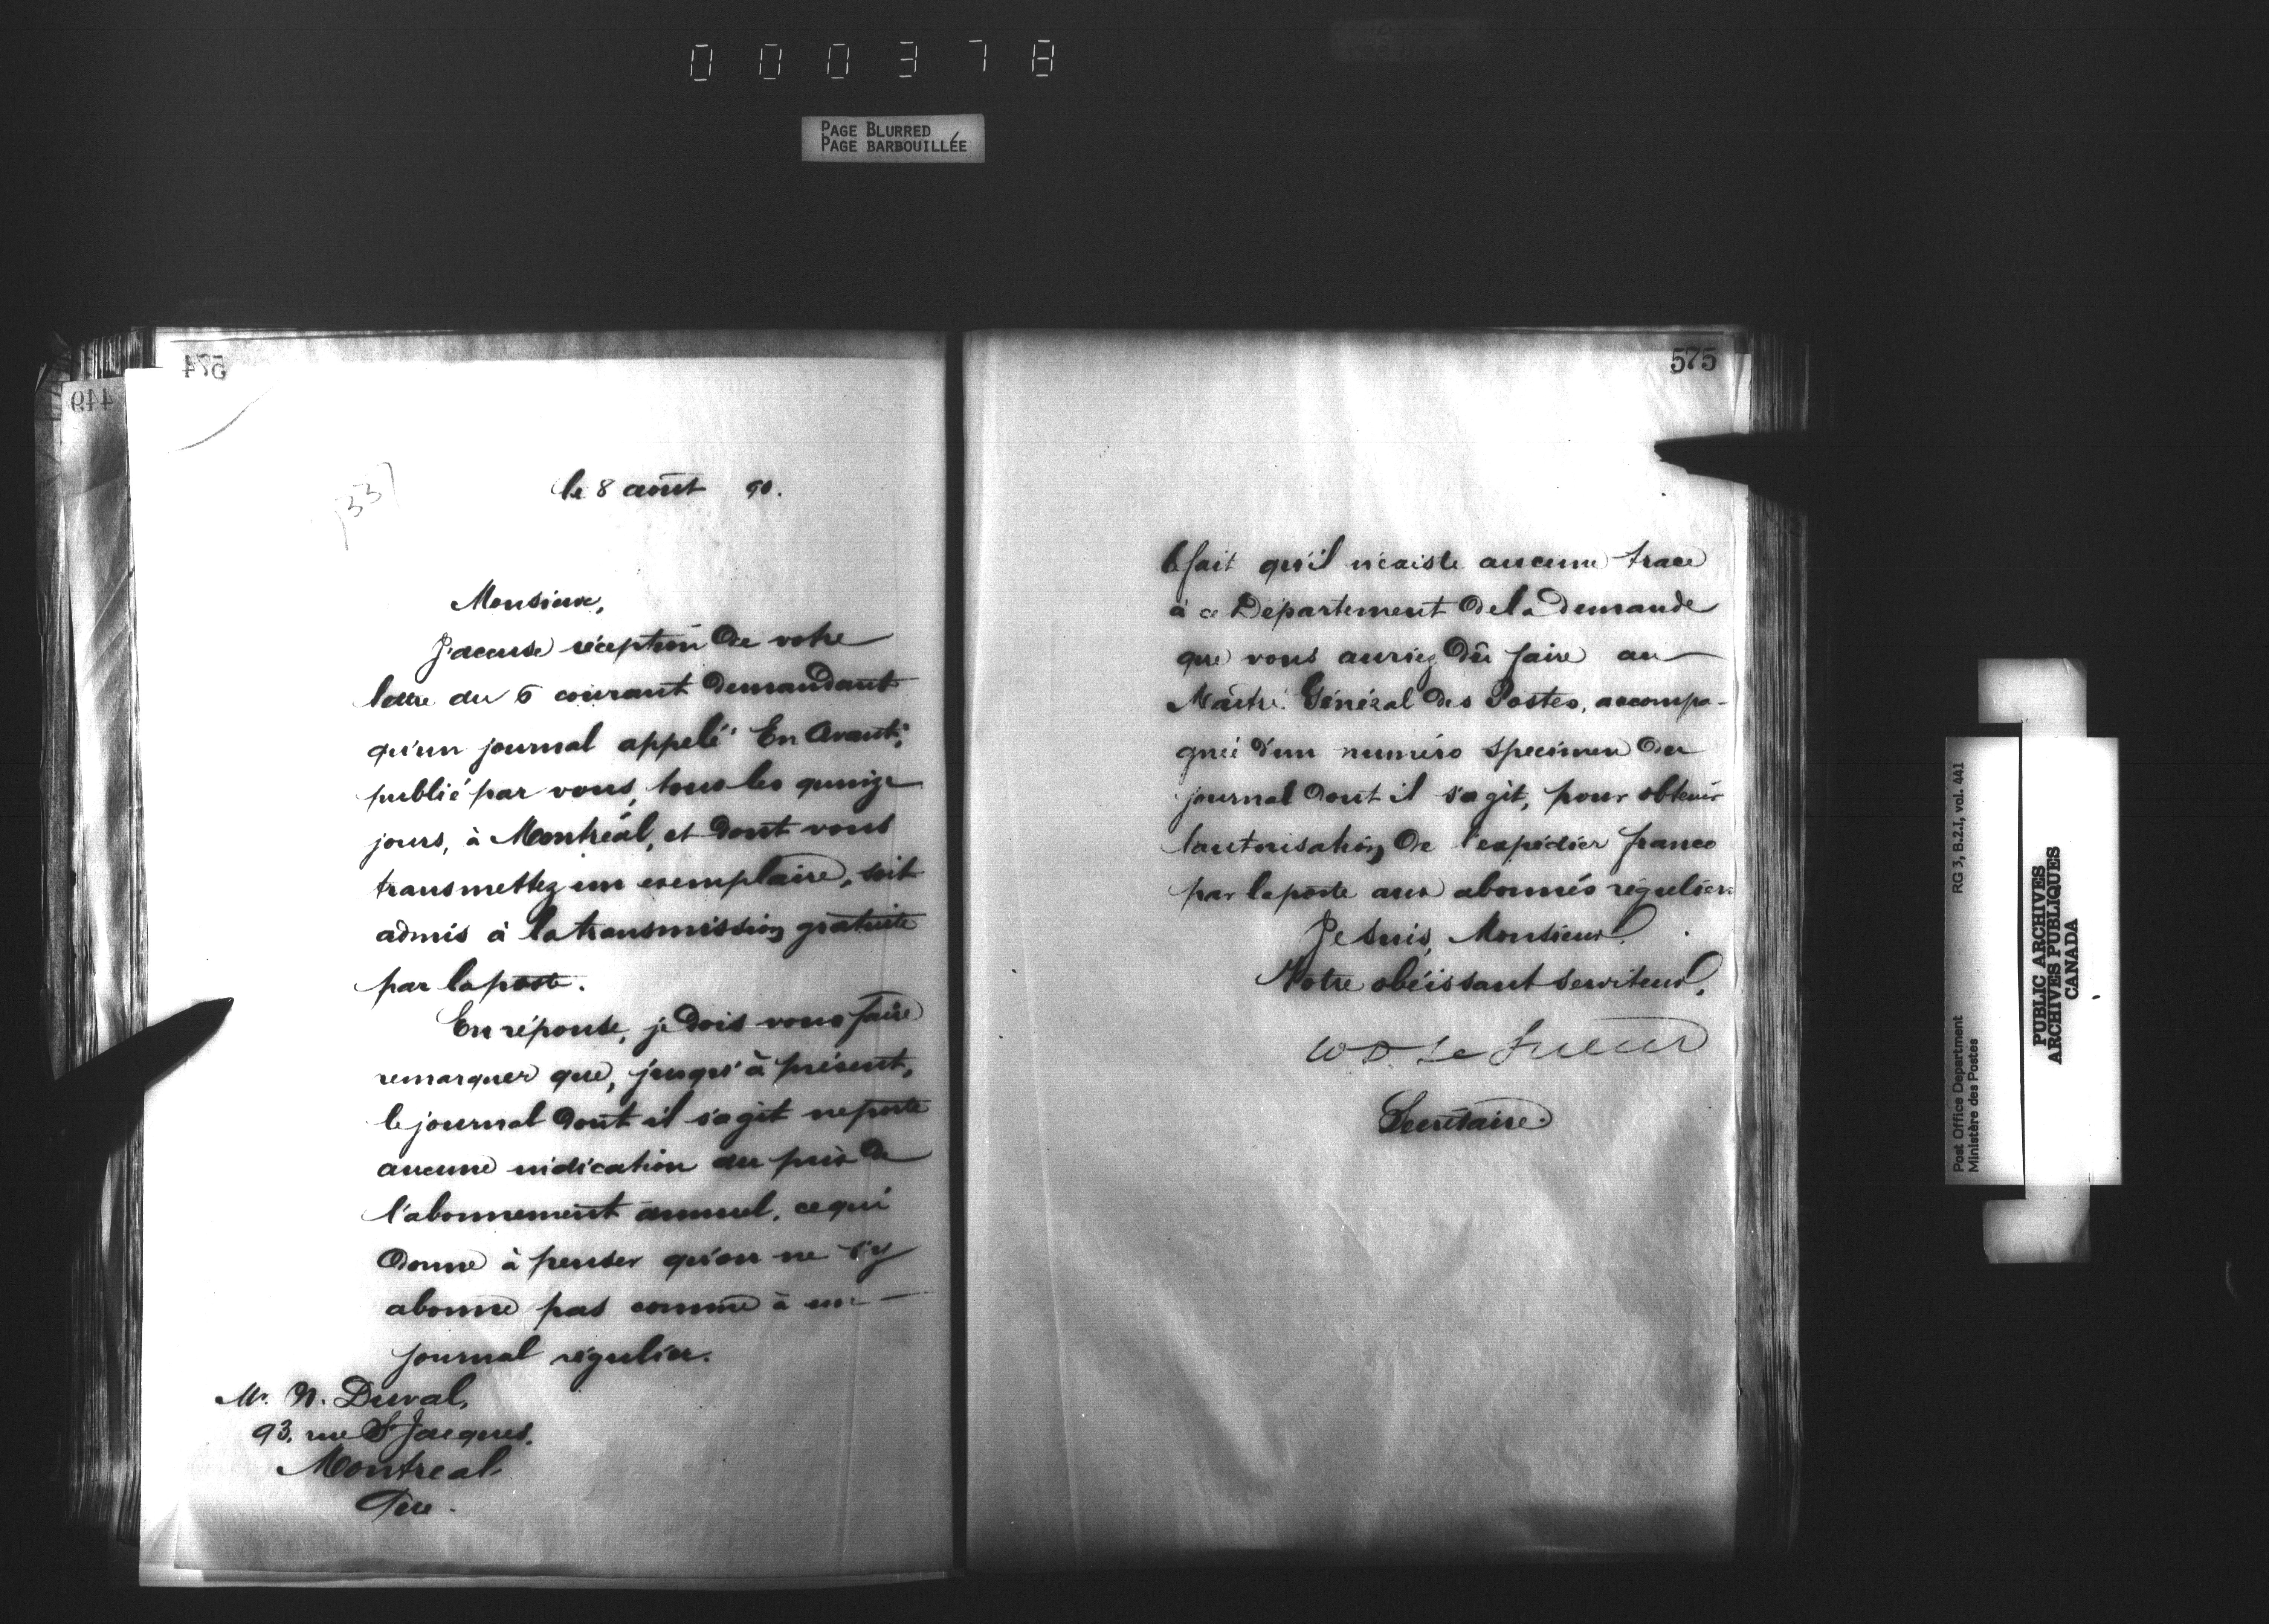 000378
PAGE BLURRED
PAGE BARBOUILLÉE
574
449
1337
le 8 août 90.
Monsieur,
J'accuse réception de votre
lettre du 6 courant demandant
qu'un journal appelé "En Avant",
publié par vous, tous les quinze
jours, à Montréal, et dont vous
transmettez un exemplaire, soit
admis à la transmission gratuite
par la poste.
En réponse, je dois vous faire
remarquer que, jusqu'à présent,
le journal dont il s'agit ne porte
aucune indication du prix de
l'abonnement annuel, ce qui
donne à penser qu'on ne s'y
abonne pas comme à un
journal régulier.
Mr. N. Duval,
93, rue St Jacques,
Montreal
Que.
575
le fait qu'il n'existe aucune trace
à ce Département de la demande
que vous auriez dû faire au
Maître Général des Postes, accompa-
gnée d'un numéro specimen du
journal dont il s'agit, pour obtenir
l'autorisation de l'expédier franco
par la poste aux abonnés réguliers
Je suis, Monsieur,
Votre obéissant serviteur,
W D Le Sueur
Secrétaire.
Post Office Department RG 3, B.2.1, vol. 441
Ministère des Postes
PUBLIC ARCHIVES
ARCHIVES PUBLIQUES
CANADA